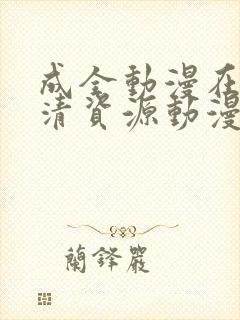 成全動漫在
清資源動漫
蘭鋒嚴